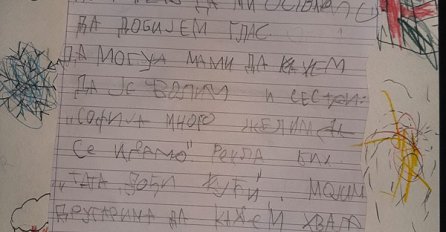 ДА МИ
ДА ДОБИЈЕМ ГЛАС.
ДА МОГУ МАМИ ДА КАЖЕМ
ДА ЈЕ ВОЛИМ И СЕСТРИ
"СОФИЈА МНОГО ЖЕЛИМ ДА
СЕ ИГРАМО". РЕКЛА БИХ
"ТАТА ДОЂИ КУЋИ", МОЈИМ
ДРУГАРИМА ДА КАЖЕМ ХВАЛА